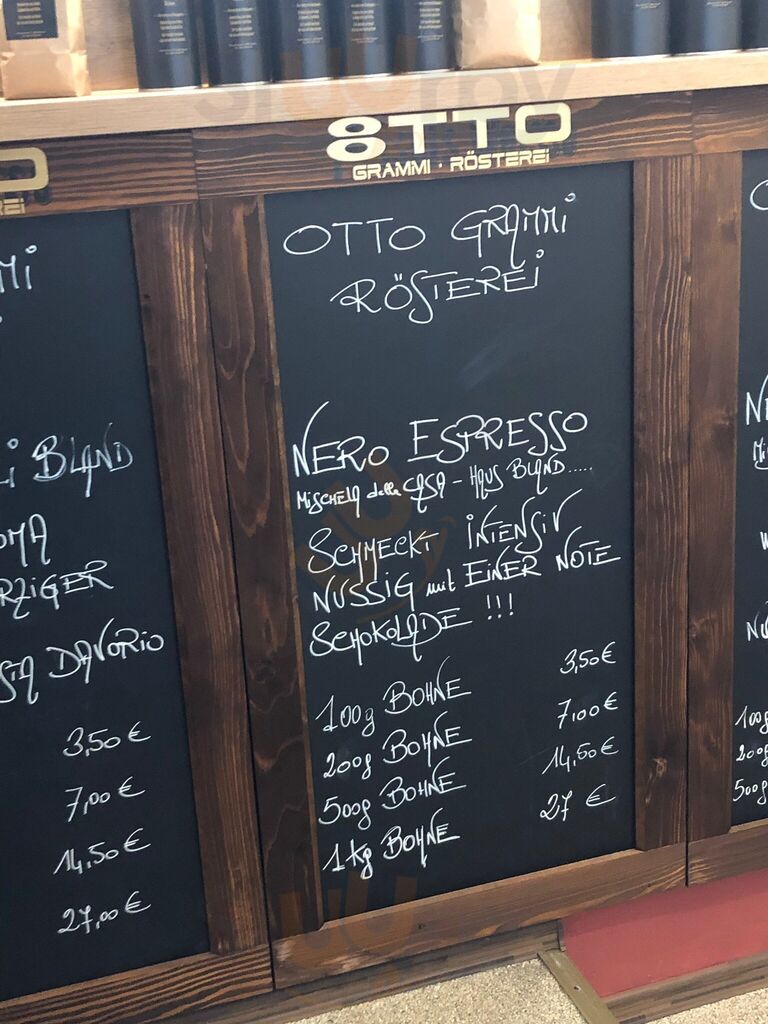 8TTO
GRAMMI · RÖSTEREI
OTTO GRAMMI
RÖSTEREI
NERO ESPRESSO
MISCHELA della CASA - HAUS BLAND.....
SCHMECKT INTENSIV
NUSSIG mit EINER NOTE
SCHOKOLADE !!!
100g BOHNE 3,50€
200g BOHNE 7,00€
500g BOHNE 14,50€
1kg BOHNE 27 €
BLAND
DAVORIO
3,50€
7,00€
14,50€
27,00€
100g
200g
500g